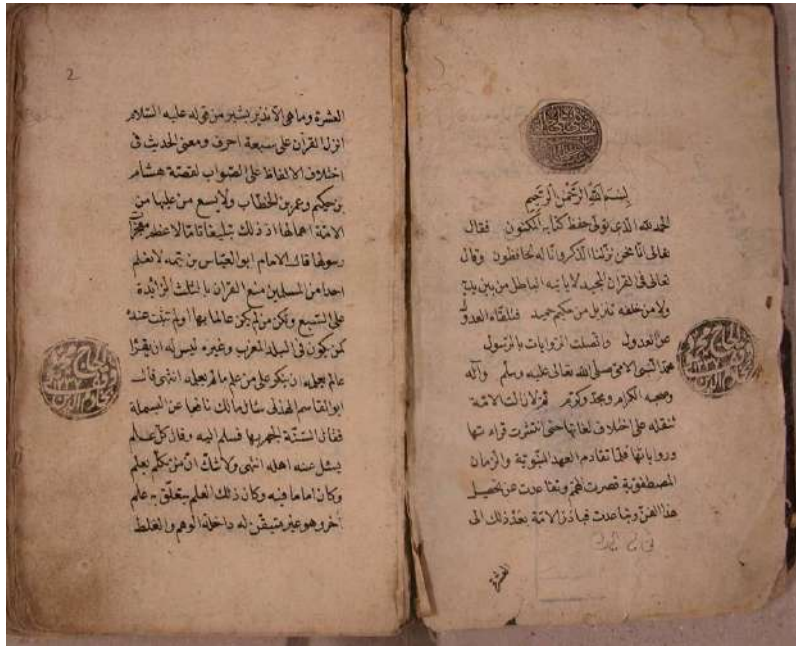 بسم الله الرحمن الرحيم
الحمد لله الذى تولى حفظ كتابه المكنون فقال
تعالى انا نحن نزلنا الذكر وانا له لحافظون وقال
تعالى فى القران المجيد لا ياتيه الباطل من بين يديه
ولا من خلفه تنزيل من حكيم حميد فتلقاه العدول
عن العدول واتصلت الروايات بالرسول
محمد النبى الامى صلى الله تعالى عليه وسلم وآله
وصحبه الكرام ومجد وكرم ثم لا زالت الامة
تنقله على اختلاف لغاتها حتى انتشرت قراءتها
ورواياتها فلما تقادم العهد النبوية والزمان
المصطفوية قصرت الهمم وتقاعدت عن تحصيل
هذا الفن وتباعدت فبادر الامة بعد ذلك الى
العشرة
2
العشرة وما هى الا نذير بشير من قوله عليه السلام
انزل القرآن على سبعة احرف ومعنى الحديث فى
اختلاف الالفاظ على الصواب لقصة هشام
بن حكيم وعمر بن الخطاب ولا يسع من عليها من
الامة اهمالها اذ ذلك تبليغا تاما لاعظم معجزة
رسولها قال الامام ابو العباس بن تيمه لا نعلم
احدا من المسلمين منع القران بالثلث الزائدة
على السبع ولكن من لم يكن عالما بها او لم تثبت عنده
كمن يكون فى البلد المغرب وغيره ليس له ان يقرا
عالم يعمله ان ينكر على من علم مالم يعمله انتهى قال
ابو القاسم الهذلى سئلو مالك نافعا عن البسملة
فقال السنة الجهر بها فسلم اليه وقال كل علم
يسئل عنه اهله انتهى ولا شك ان من تكلم بعلم
وكان اماما فيه وكان ذلك العلم يتعلق به علم
آخر وهو غير متيقن له داخله الوهم والغلط